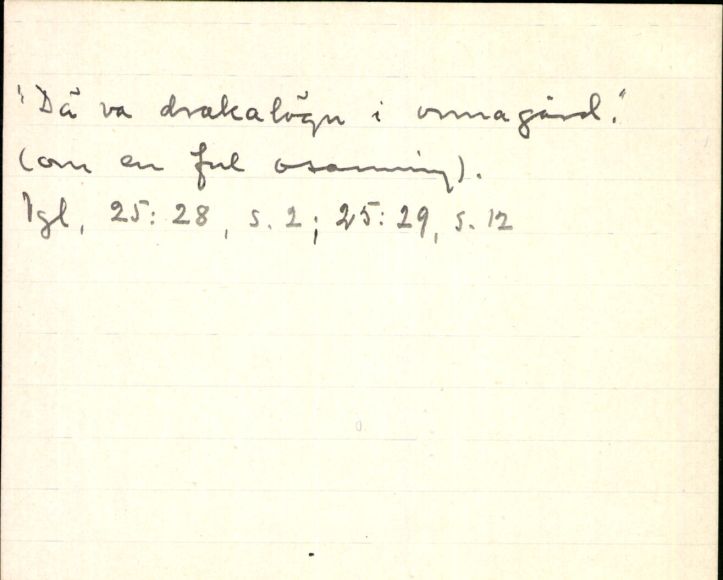 "Dä va drakalögn i ormagård."
(om en ful osanning).
Igl, 25:28, s. 2; 25:29, s. 12